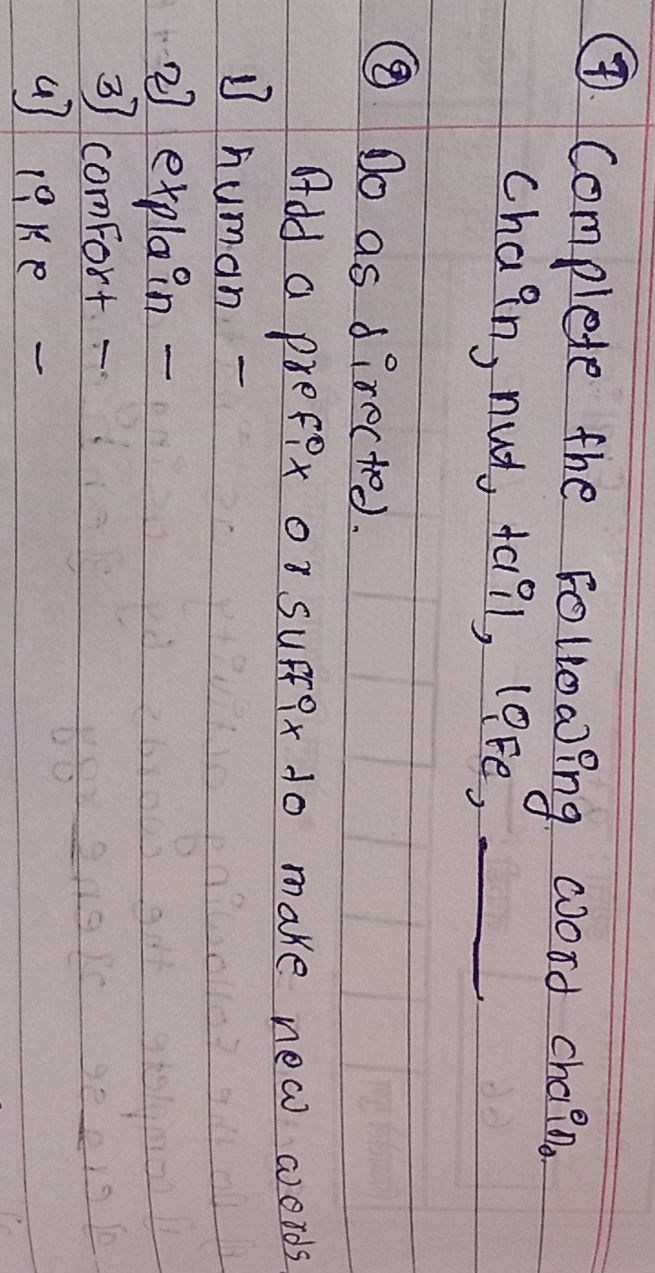 ⑦. Complete the following word chain.
chain, nut, tail, life, ______
⑧ Do as directed.
Add a prefix or suffix to make new words
1] human -
2] explain -
3] comfort -
4] like -